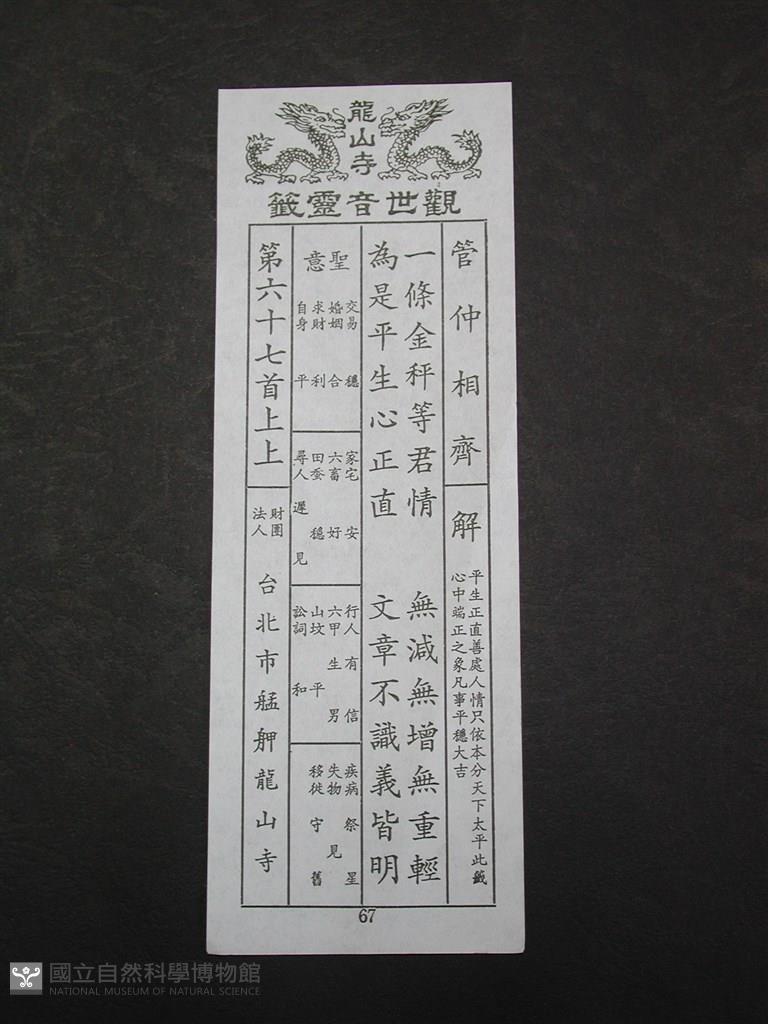 龍山寺
觀世音靈籤
管仲相齊
解
平生正直善處人情只依本分天下太平此籤
心中端正之象凡事平穩大吉
一條金秤等君情 無減無增無重輕
為是平生心正直 文章不識義皆明
聖意
交易 穩
婚姻 合
求財 利
自身 平
家宅 安
六畜 好
田蚕 穩
尋人 遲見
行人 有信
六甲 生男
山坟 平
訟詞 和
疾病 祭星
失物 見
移徙 守舊
第六十七首上上
財團法人
台北市艋舺龍山寺
67
國立自然科學博物館
NATIONAL MUSEUM OF NATURAL SCIENCE